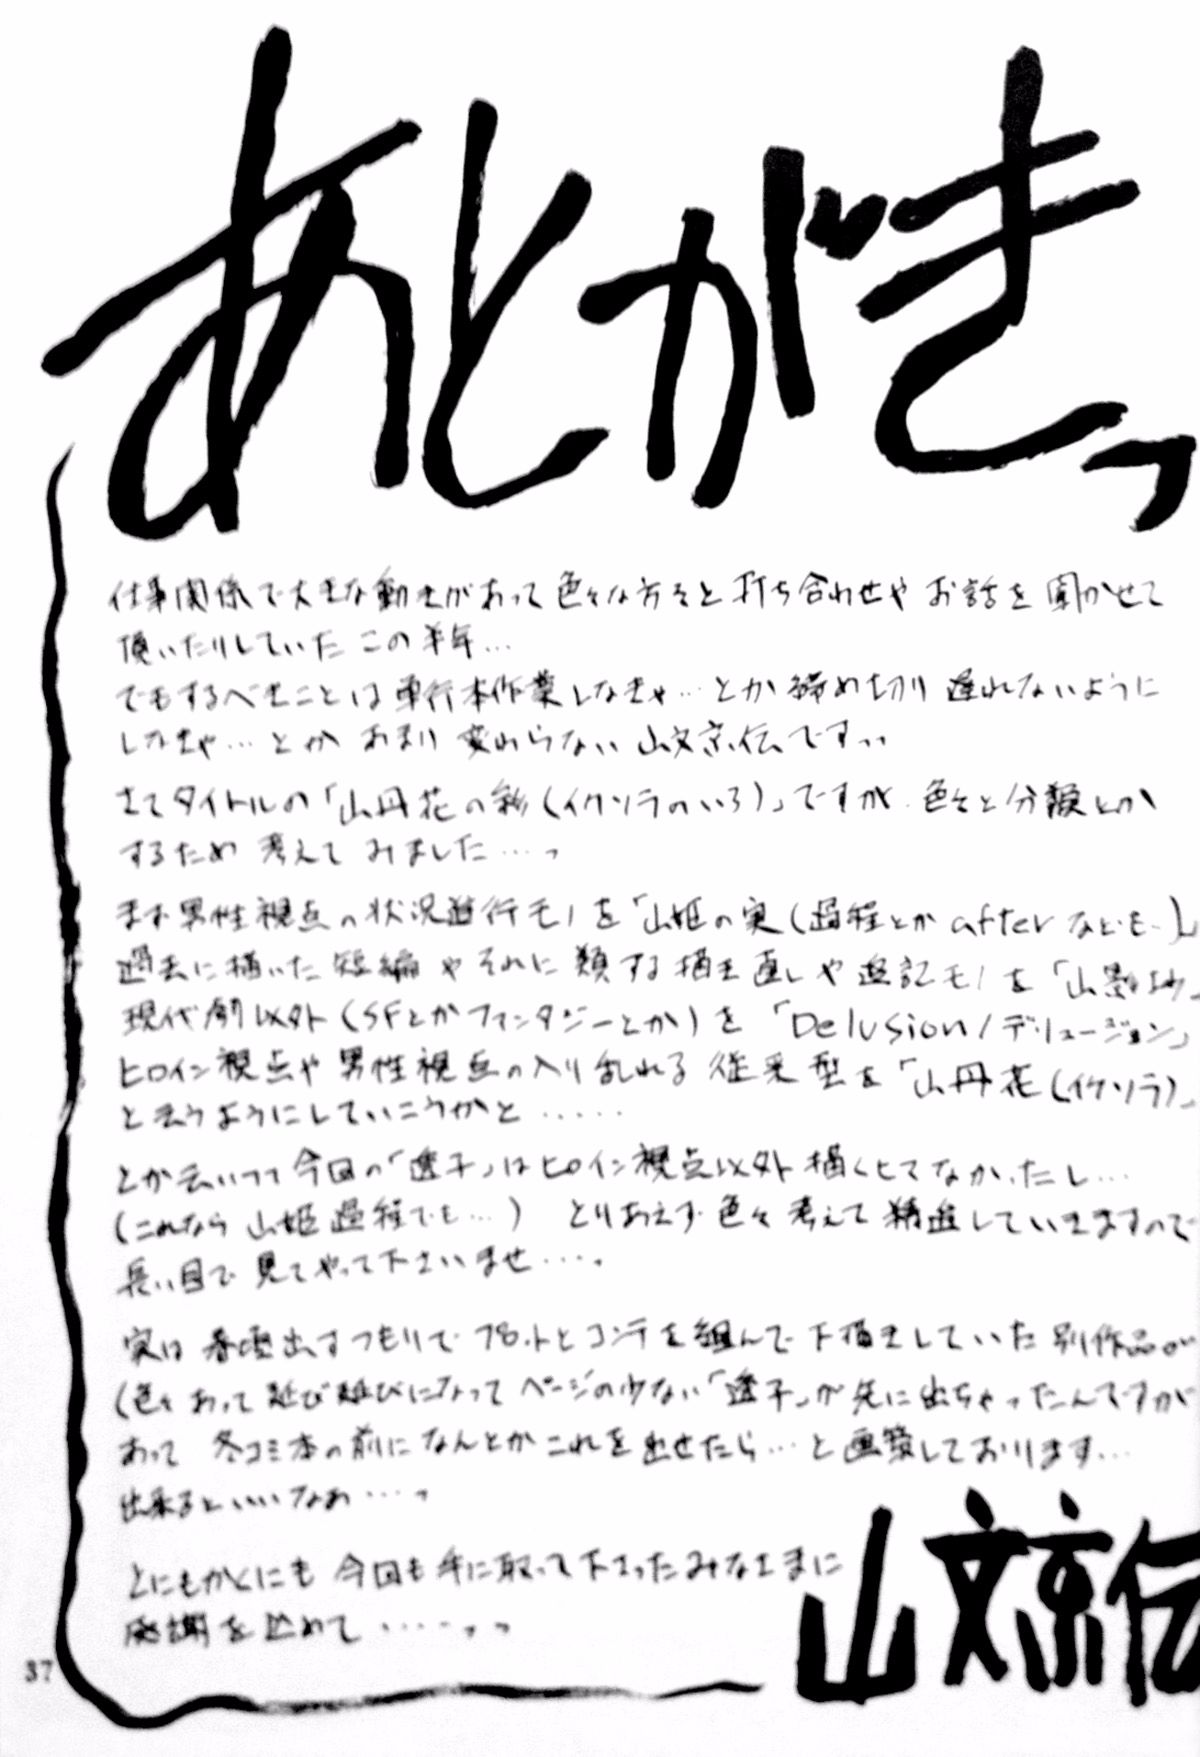 あとがきっ
仕事関係で大きな動きがあって色々な方々と打ち合わせやお話を聞かせて
頂いたりしていたこの半年…
でもするべきことは単行本作業しなきゃ…とか締め切り遅れないように
しなきゃ…とかあまり変わらない山文京伝ですっ
さてタイトルの「山丹花の彩(イケソラのいろ)」ですが、色々と分類とか
するため考えてみました……っ
まず男性視点の状況進行モノを「山姫の実(過程とかafterなども…)」
過去に描いた短編やそれに類する描き直しや追記モノを「山影抄」
現代劇以外(SFとかファンタジーとか)を「Delusion/デリュージョン」
ヒロイン視点や男性視点の入り乱れる従来型を「山丹花(イケソラ)」
と云うようにしていこうかと……
とか云いつつ今回の「透子」はヒロイン視点以外描くヒマなかったし…
(これなら山姫過程でも…) とりあえず色々考えて精進していきますので
長い目で見てやって下さいませ……。
実は春頃出すつもりでプロットとコンテを組んで下描きしていた別作品が
(色々あって延び延びになってページの少ない「透子」が先に出ちゃったんですが
あって 冬コミ本の前になんとかこれを出せたら…と画策しております…
出来るといいなぁ……っ
とにもかくにも今回も手に取って下さったみなさまに
感謝を込めて……っっ
山文京伝
37